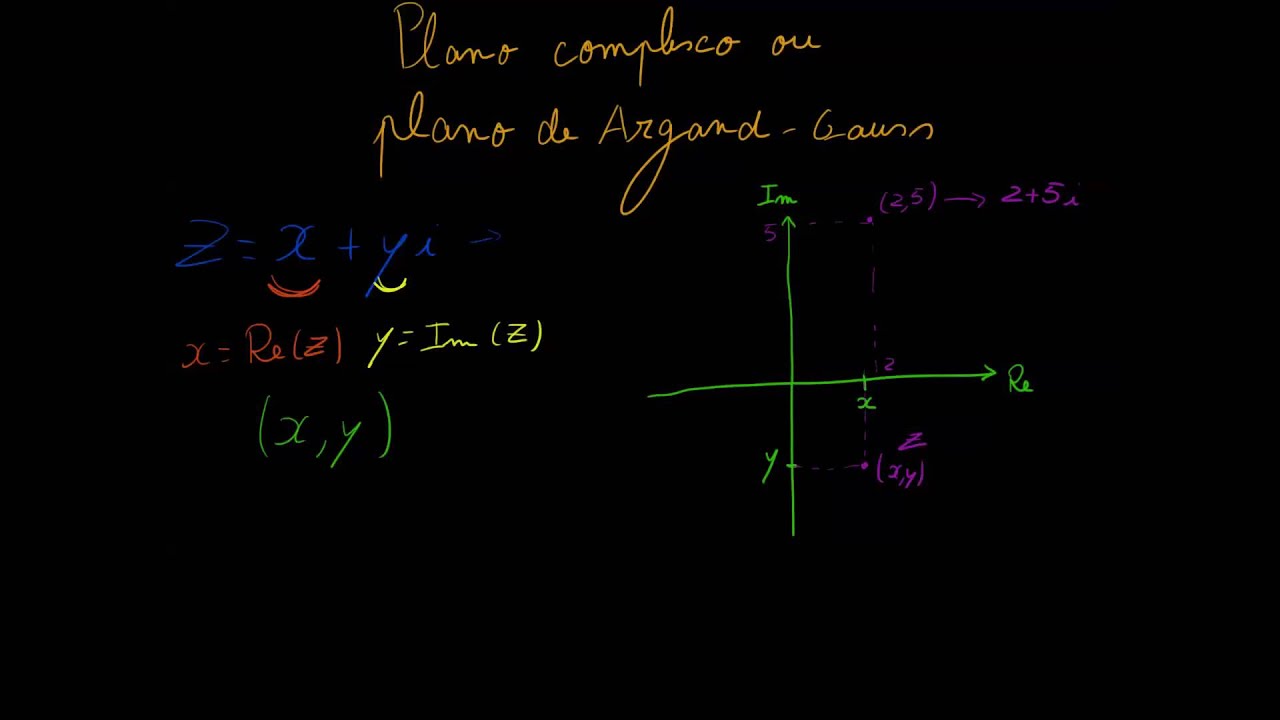 Plano complexo ou
plano de Argand-Gauss
Z = x + yi →
x = Re(Z) y = Im(Z)
(x, y)
Im
5
(2,5) → 2+5i
2
Re
x
y
Z
(x,y)